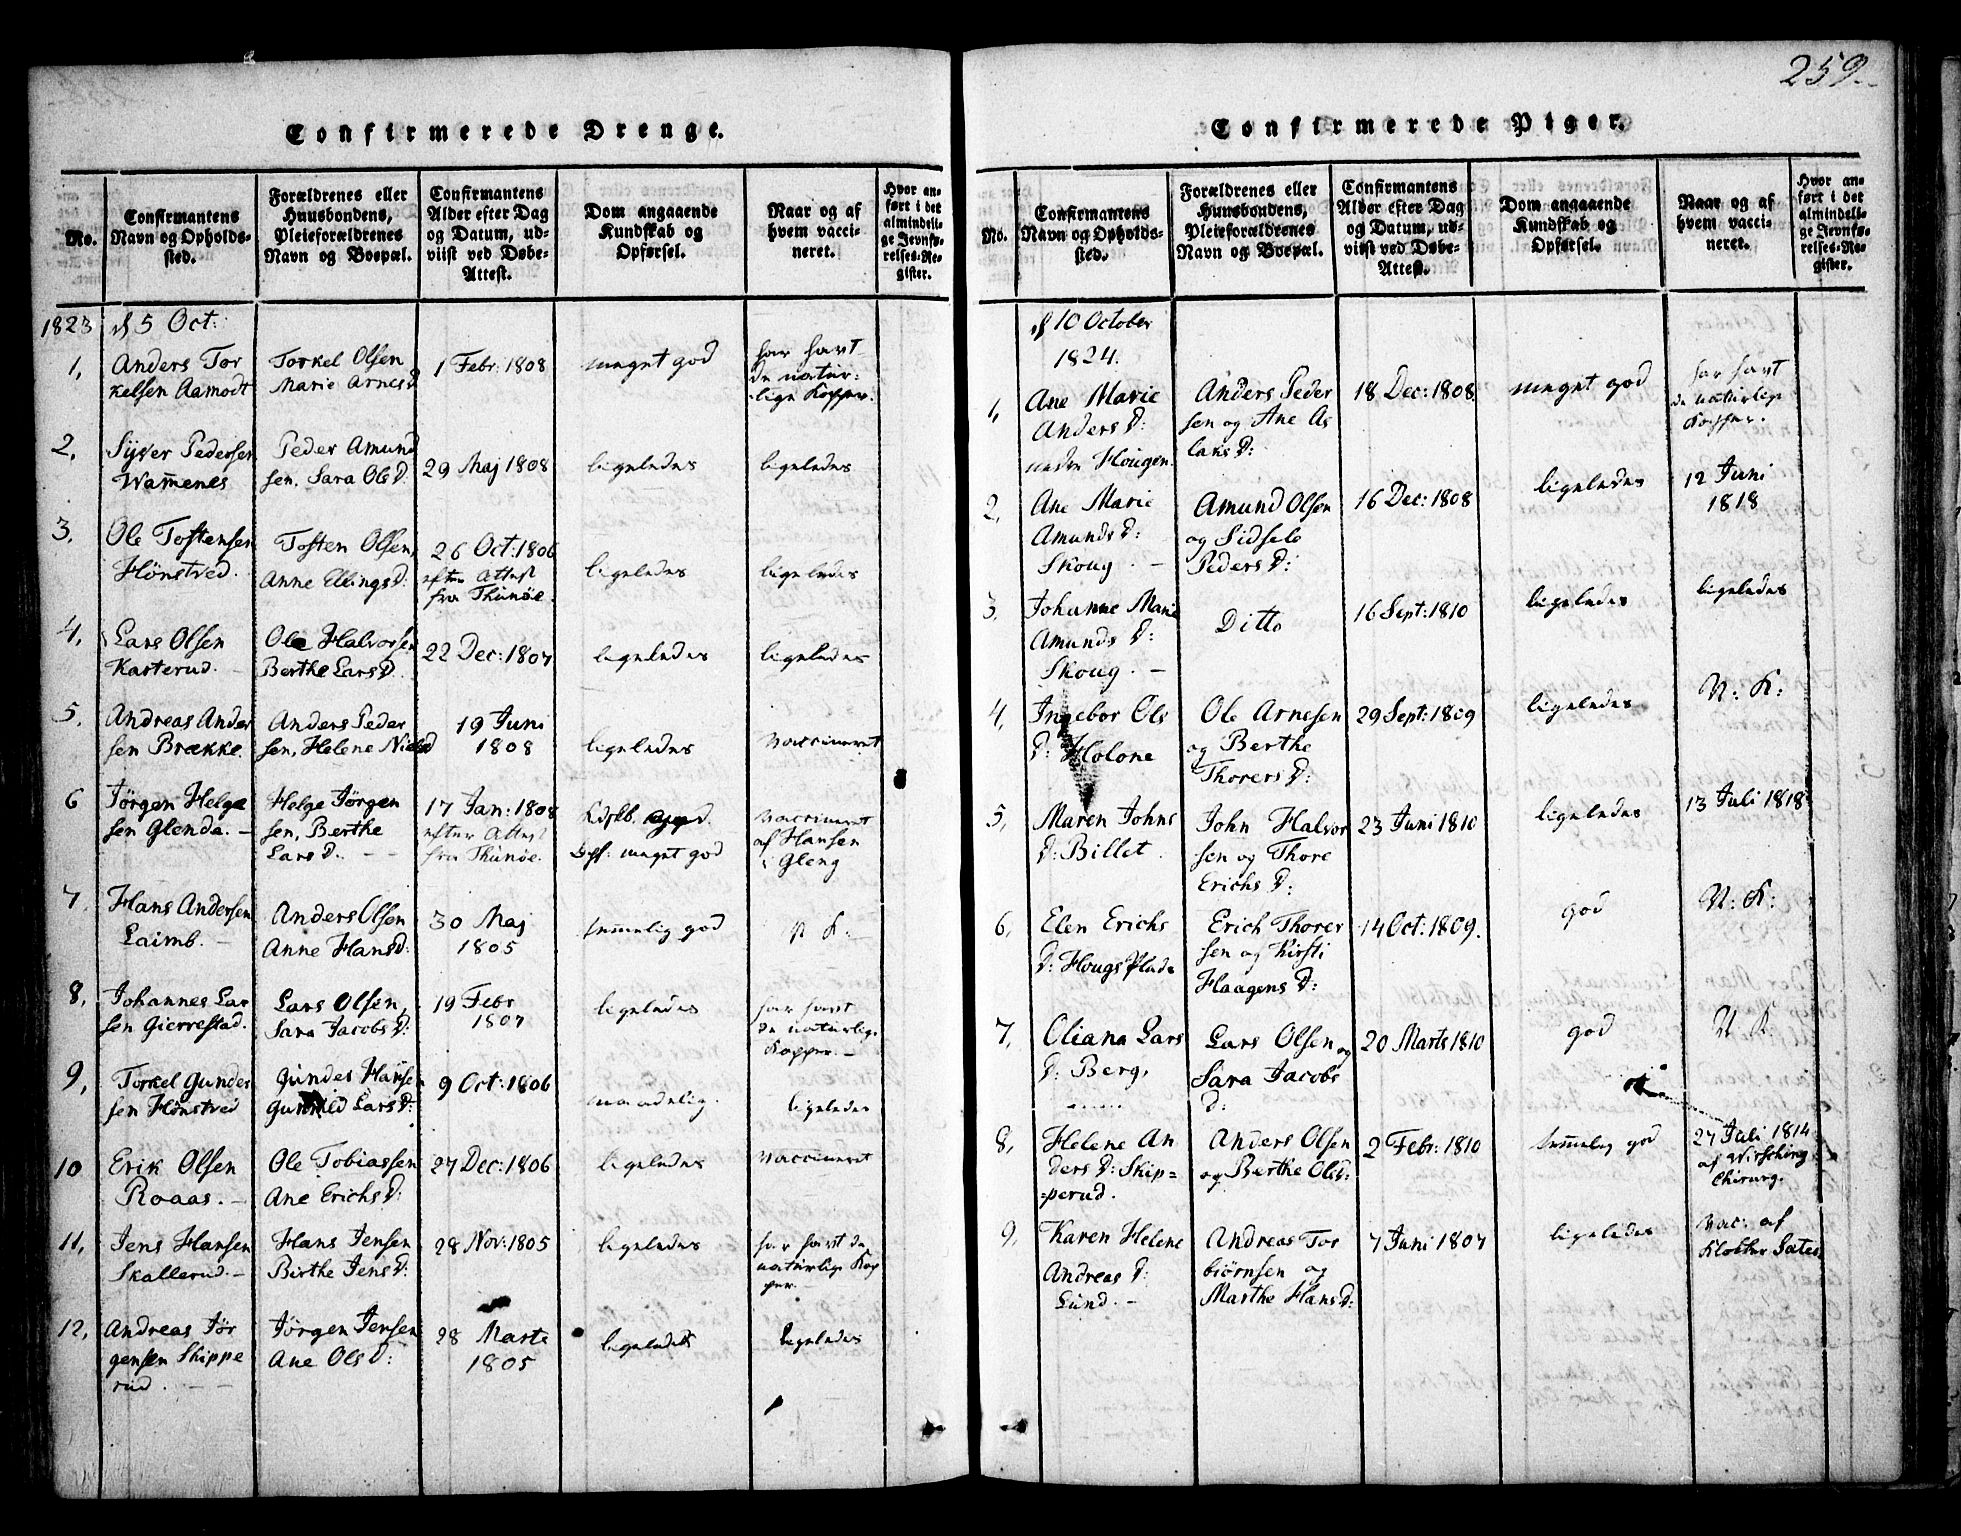 259.
Confirmerede Drenge.
No.
Confirmantens
Navn og Opholds-
sted.
Forældrenes eller
Huusbondens,
Pleieforældrenes
Navn og Boepæl.
Confirmantens
Alder efter Dag
og Datum, ud-
viist ved Døbe-
Attest.
Dom angaaende
Kundskab og
Opførsel.
Naar og af
hvem vacci-
neret.
Hvor an-
ført i det
almindeli-
ge Jevnfø-
relses-Re-
gister.
1823 d 5 Oct:
1, Anders Tor
kelsen Aamodt
Torkel Olsen
Marie Arnes D
1 Febr: 1808
meget god
har havt
de natur-
lige Kopper.
2, Syver Pedersen
Wamenes
Peder Amund
sen, Sara Ols D:
29 Maj 1808
ligeledes
ligeledes
3, Ole Tostensen
Hönstved.
Tosten Olsen,
Anne Ellings D:
26 Oct: 1806
efter Attest
fra Thunöe.
ligeledes
ligeledes
4, Lars Olsen
Kasterud. -
Ole Halvorsen
Berthe Lars D.
22 Dec: 1807
ligeledes
ligeledes
5, Andreas Ander
sen Brække.
Anders Peder
sen, Helene Niels D
19 Juni
1808
ligeledes
vaccineret
6 Jörgen Helge
sen Glenda. -
Helge Jörgen
sen, Berthe
Lars D. - -
17 Jan: 1808
efter Attest
fra Thunöe.
meget god
vaccineret
af Hansen
i Gleng
7, Hans Andersen
Laimb. -
Anders Olsen
Anne Hans D:
30 Maj
1805
temmelig god
N K: -
8, Johannes Lar
sen Gierrestad.
Lars Olsen,
Sara Jacobs D:
19 Febr
1807
ligeledes
har havt
de naturlige
Kopper. -
9, Torkel Gunder
sen Hönstved
Gunder Hansen
Gunhild Lars D:
9 Oct: 1806
maadelig.
ligeledes
10 Erik Olsen
Roaas. -
Ole Tobiassen
Ane Erichs D:
27 Dec: 1806
ligeledes
vaccineret
11, Jens Hansen
Skallerud. -
Hans Jensen
Birthe Jens D:
28 Nov: 1805
ligeledes
har havt de
naturlige Kop
per.
12, Andreas Jör
gensen Skippe
rud. - -
Jörgen Jensen
Ane Ols D:
28 Marts
1805
ligeledes
ligeledes
Confirmerede Piger.
No.
Confirmantens
Navn og Opholds-
sted.
Forældrenes eller
Huusbondens,
Pleieforældrenes
Navn og Boepæl.
Confirmantens
Alder efter Dag
og Datum, ud-
viist ved Døbe-
Attest.
Dom angaaende
Kundskab og
Opførsel.
Naar og af
hvem vacci-
neret.
Hvor an-
ført i det
almindeli-
ge Jevnfø-
relses-Re-
gister.
d 10 October
1824.
1, Ane Marie
Anders D:
neden Hougen
Anders Peder
sen og Ane As
laks D:
18 Dec: 1808
meget god
har havt
de naturlige
Kopper.
2, Ane Marie
Amunds D:
Skoug. -
Amund Olsen
og Sidsele
Peders D:
16 Dec: 1808
ligeledes
12 Juni
1818
3, Johanne Marie
Amunds D:
Skoug. -
Ditto
16 Sept: 1810
ligeledes
ligeledes
4, Ingebor Ols
D: Holone
Ole Arnesen
og Berthe
Thorers D:
29 Sept: 1809
ligeledes
N: K:
5, Maren Johns
D: Billet.
John Halvor
sen og Thore
Erichs D:
23 Juni 1810
ligeledes
13 Juli 1818
6, Elen Erichs
D: Hougs Plads
Erich Thorer
sen og Kirsti
Haagens D:
14 Oct: 1809.
god
N: K:
7, Oliana Lars
D: Berg,
Lars Olsen og
Sara Jacobs
D:
20 Marts 1810
god
N K
8, Helene An
ders D: Skip=
=perud.
Anders Olsen
og Berthe Ols D:
2 Febr: 1810
temmelig god
27 Juli 1814
af Wirsching
Chirurg.
9, Karen Helene
Andreas D:
Lund. -
Andreas Tor
biörnsen og
Marthe Hans D:
7 Juni 1807
ligeledes
vac: af
Klokker Sates